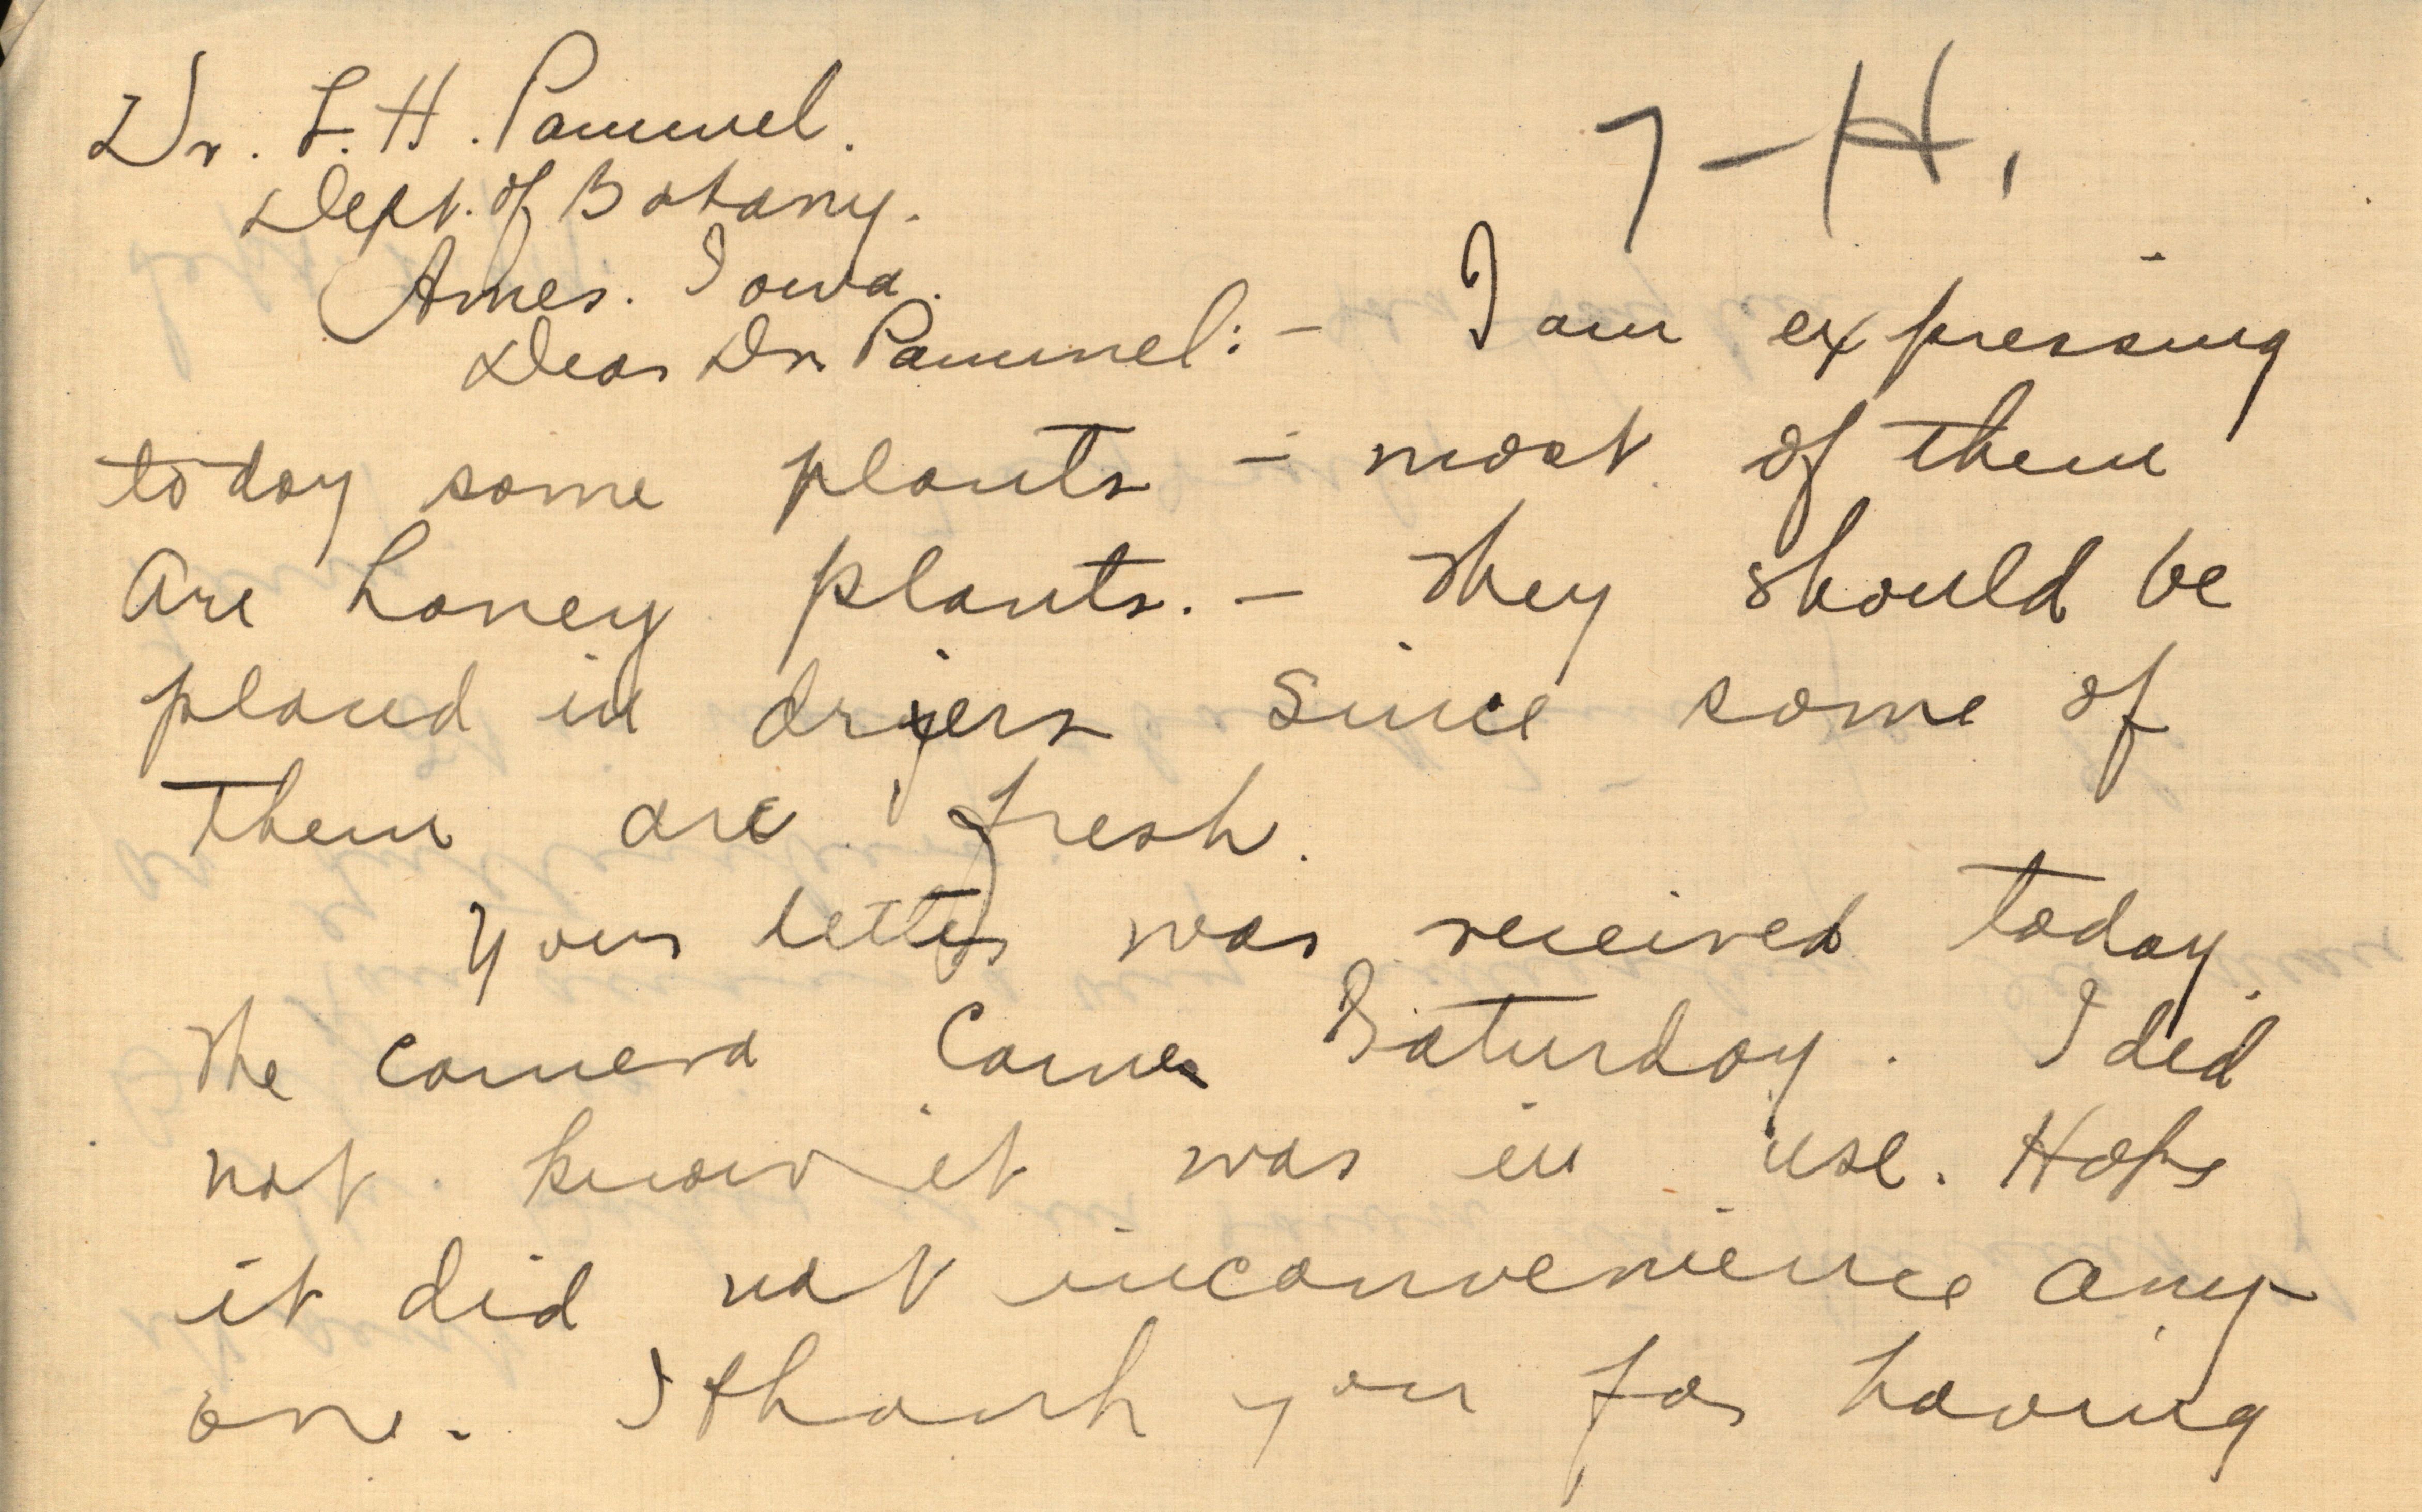 Dr. L. H. Pammel.
7-H,
Dept. of Botany.
Ames. Iowa.
Dear Dr. Pammel:- I am expressing
today some plants - most of them
are honey plants. - They should be
placed in driers since some of
them are fresh.
Your letter was received today.
The camera came Saturday. I did
not know it was in use. Hope
it did not inconvenience any-
one. I thank you for having